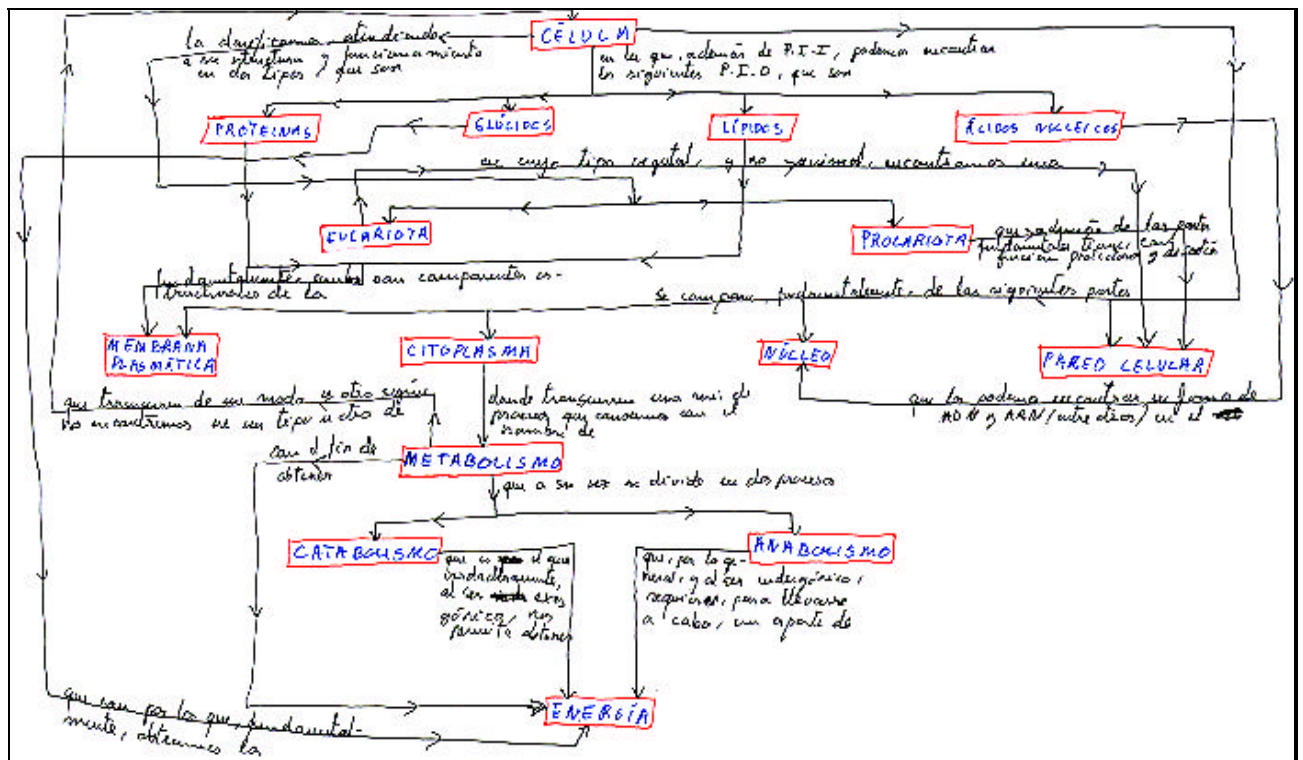 CÉLULA
la clasificamos, atendiendo
a su estructura y funcionamiento
en dos tipos, que son
en la que, además de P.I.I, podemos encontrar
los siguientes P.I.O, que son
PROTEÍNAS
GLÚCIDOS
LÍPIDOS
ÁCIDOS NUCLEICOS
en cuyo tipo vegetal, y no animal, encontramos una
EUCARIOTA
PROCARIOTA
que además de las partes
fundamentales tienen con
función protectora y de sostén
fundamentalmente, ambos son componentes es-
tructurales de la
se compone, fundamentalmente, de las siguientes partes
MEMBRANA
PLASMÁTICA
CITOPLASMA
NÚCLEO
PARED CELULAR
que transcurren de un modo u otro según
nos encontremos en un tipo u otro de
donde transcurren una serie de
procesos que conocemos con el
nombre de
que los podemos encontrar en forma de
ADN y ARN (entre otros) en el
con el fin de
obtener
METABOLISMO
que a su vez se divide en dos procesos
CATABOLISMO
ANABOLISMO
que es el que
al ser exer
gónico, nos
permite obtener
que, por lo ge-
neral, y al ser endergónico,
requieren, para llevarse
a cabo, un aporte de
que son por los que, fundamental-
mente, obtenemos la
ENERGÍA